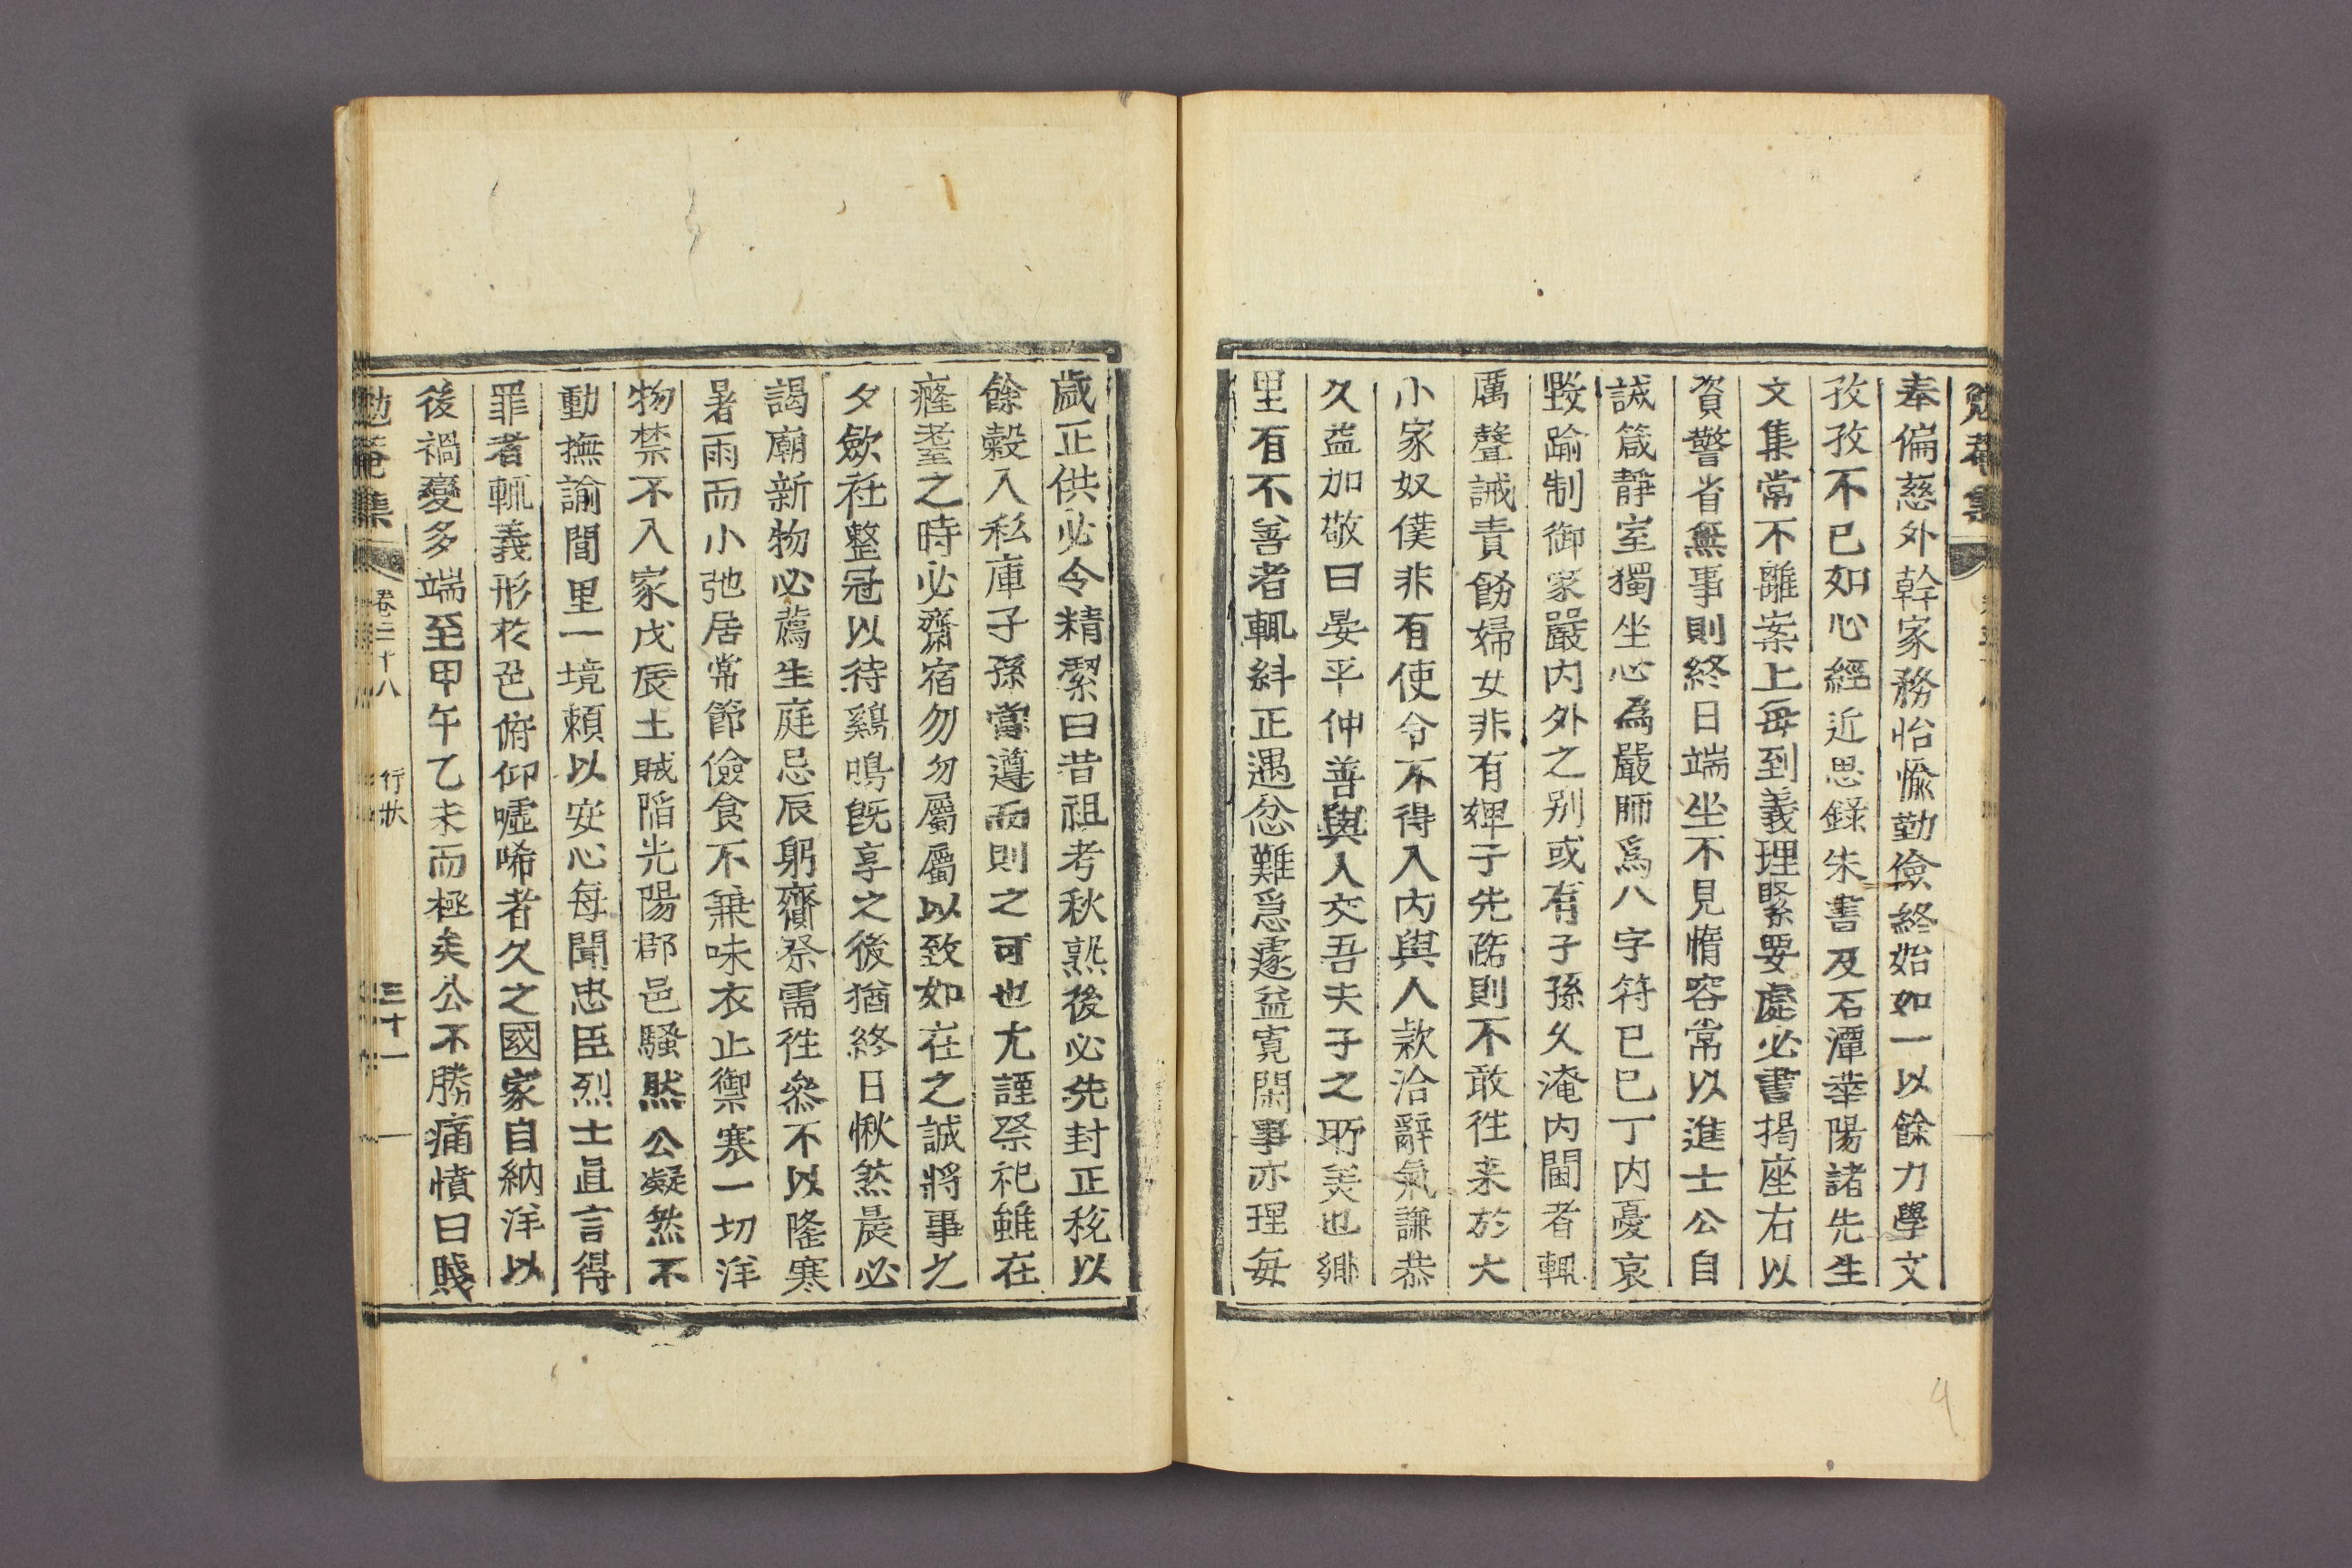 勉菴集
奉偏慈外幹家務怡愉勤儉終始如一以餘力學文
孜孜不已如心經近思錄朱書及石潭華陽諸先生
文集常不離案上每到義理緊要處必書揭座右以
資警省無事則終日端坐不見惰容常以進士公自
誡箴靜室獨坐心爲嚴師爲八字符已巳丁內憂哀
毁踰制御家嚴內外之别或有子孫久淹內閫者輒
厲聲誡責飭婦女非有婢子先蹈則不敢徃来於大
小家奴僕非有使令不得入內與人款洽辭氣謙恭
久益加敬曰晏平仲善與人交吾夫子之所美也鄉
里有不善者輒糾正遇忿難忍遽益寬閑事亦理每
歲正供必令精潔曰昔祖考秋熟後必先封正稅以
餘穀入私庫子孫當遵而則之可也尤謹祭祀雖在
癃耋之時必齋宿勿勿屬屬以致如在之誠將事之
夕歛衽整冠以待鷄鳴旣享之後猶終日愀然晨必
謁廟新物必薦生庭忌辰躬齎祭需徃參不以隆寒
暑雨而小弛居常節儉食不兼味衣止禦寒一切洋
物禁不入家戊辰土賊陷光陽郡邑騷然公凝然不
動撫諭閭里一境頼以安心每聞忠臣烈士直言得
罪者輒義形於色俯仰噓唏者久之國家自納洋以
後禍變多端至甲午乙未而極矣公不勝痛憤曰賤
勉菴集 卷三十八 行狀 三十一